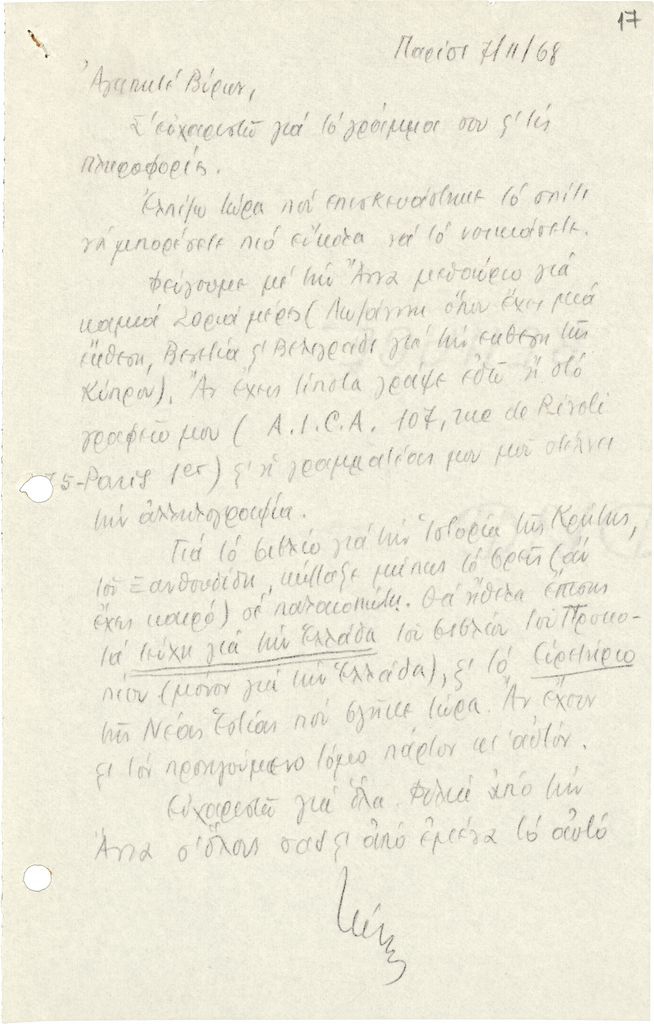 17
Παρίσι 7/11/68
Ἀγαπητέ Βύρων,
Σ' εὐχαριστῶ γιά τό γράμμα σου ξ' τίς
πληροφορίες.
Ἐλπίζω τώρα πού ἐπισκευάστηκε τό σπίτι
νά μπορέσετε πιό εὔκολα νά τό νοικιάσετε.
Φεύγουμε μέ τήν Ἄννα μεθαύριο γιά
καμιά 20ριά μέρες (Λωζάννη ὅπου ἔχει μιά
ἔκθεση, Βενετία ξ' Βελιγράδι γιά τήν ἔκθεση τῆς
Κύπρου). Ἄν ἔχεις τίποτα γράψε ἐδῶ ἤ στό
γραφεῖο μου (A.I.C.A. 107, rue de Rivoli
75-Paris 1er) ξ' ἡ γραμματέας μου μοῦ στέλνει
τήν ἀλληλογραφία.
Γιά τό βιβλίο γιά τήν Ἱστορία τῆς Κρήτης,
τοῦ Ξανθουδίδη, κύτταξε μήπως τό βρεῖς (ἄν
ἔχεις καιρό) σέ παλαιοπώλη. Θά ἤθελα ἐπίσης
τά τεύχη γιά τήν Ἑλλάδα τοῦ βιβλίου τοῦ Προκο-
πίου (μόνον γιά τήν Ἑλλάδα), ξ' τό Εὑρετήριο
τῆς Νέας Ἑστίας πού βγῆκε τώρα. Ἄν ἔχουν
ξ' τόν προηγούμενο τόμο πάρτον κι' αὐτόν.
Εὐχαριστῶ γιά ὅλα. Φιλιά ἀπό τήν
Ἄννα σ' ὅλους σας ξ' ἀπό ἐμένα τό αὐτό